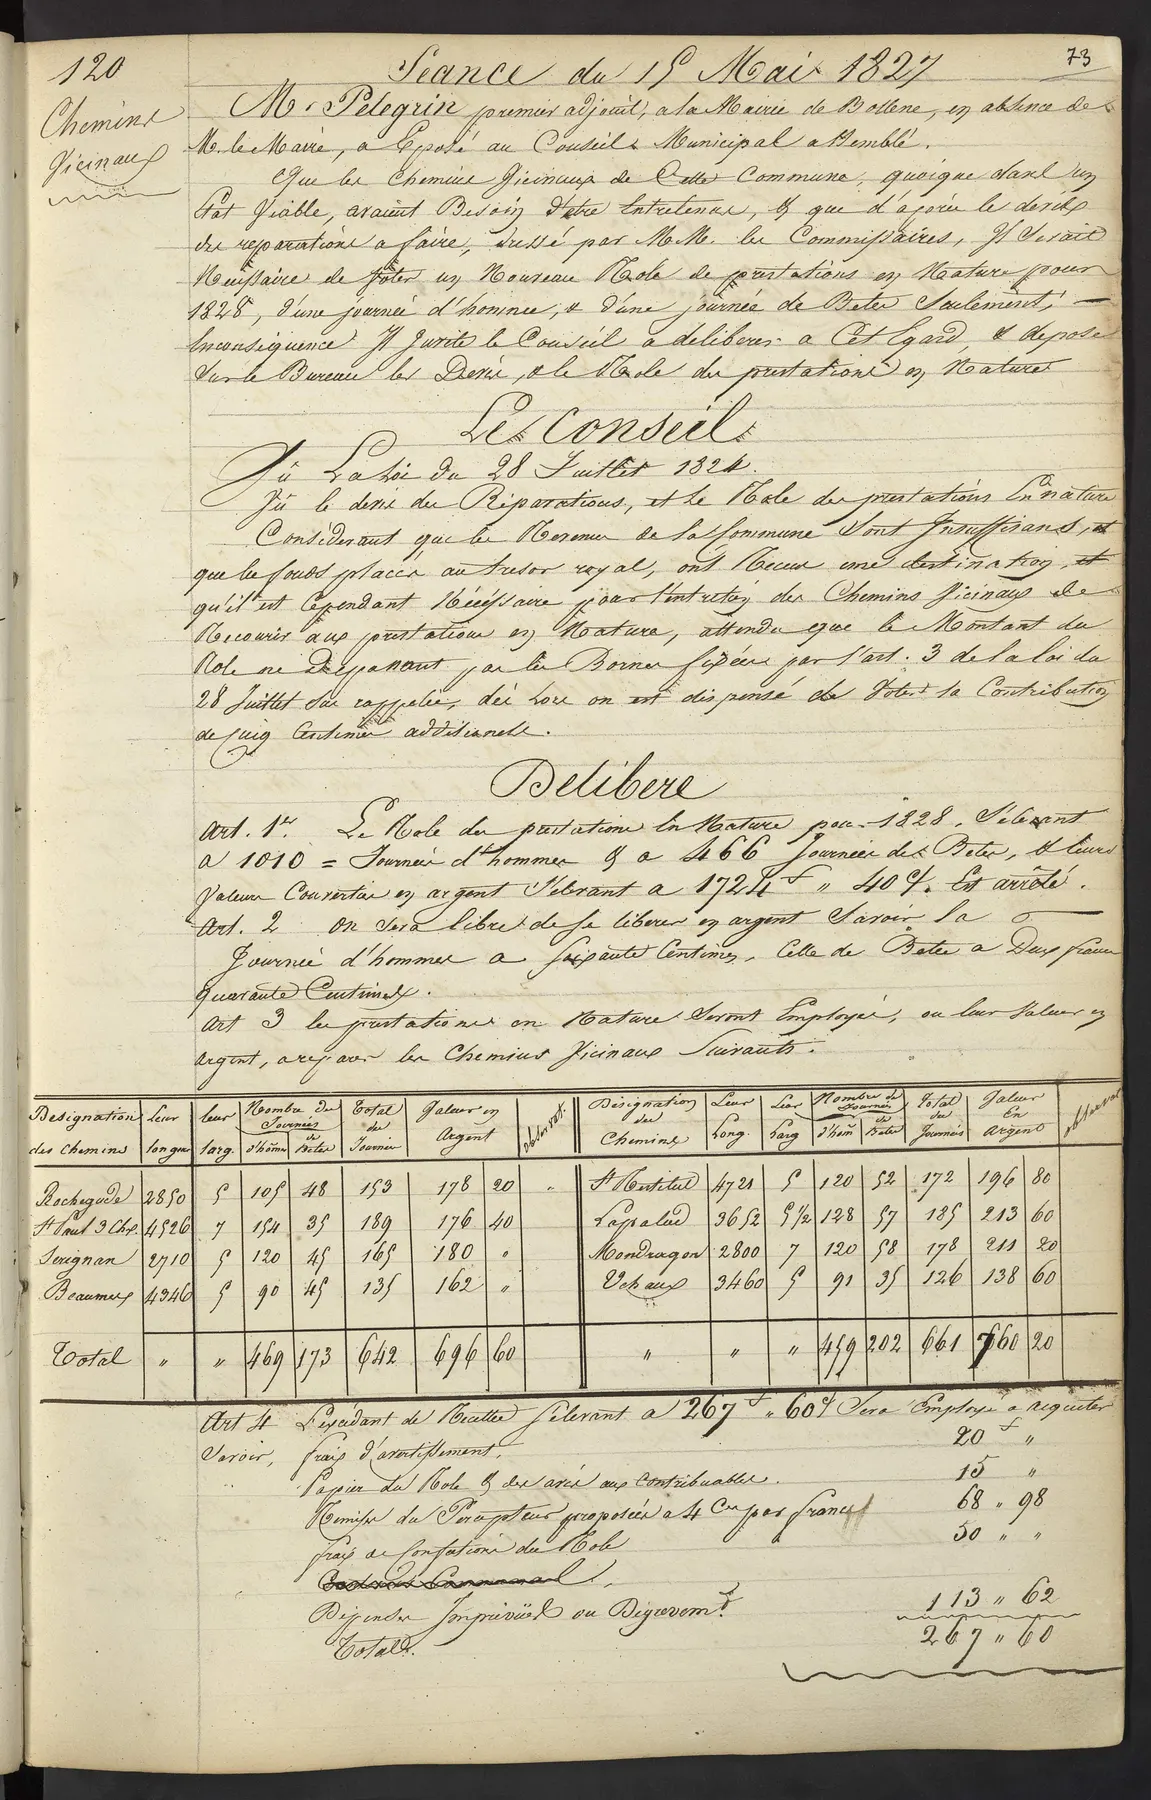 120
73
Séance du 15 Mai 1827
Chemins
Vicinaux
Mr Pelegrin premier adjoint, a la Mairie de Bollene, en absence de
M. le Maire, a Eposé au Conseil Municipal assemblé.
Que les Chemins Vicinaux de Cette Commune, quoique dans un
Etat Viable, avaient Besoin d'etre Entretenus, & que d'après le devis
des reparations a faire, dressé par M.M. les Commissaires, Il Serait
Necessaire de Voter un Nouveau Role de prestations en Nature pour
1828, d'une journée d'homme, & d'une journée de Betes Seulement, —
Enconsequence Il Invite le Conseil a deliberer a Cet Egard, & depose
Sur le Bureau les Devis, & le Role des prestations en Nature
Le Conseil
Vû La Loi du 28 Juillet 1824.
Vû le devis des Réparations, et le Role des prestations En nature
Considerant que les Revenus de la Commune Sont Insuffisants, et
que les fonds placés au tresor royal, ont Recus une destination, et
qu'il est Cependant Nécéssaire pour l'entretien des Chemins Vicinaux de
Recourir aux prestations en Nature, attendu que le Montant du
Role ne dépassant pas les Bornes fixées par l'art. 3 de la loi du
28 Juillet sus rappelée, dès lors on est dispensé de Voter la Contribution
de Cinq Centimes additionels.
Delibere
Art. 1er. Le Role des prestations En Nature pour 1828. S'élevant
a 1010 = Journées d'hommes & a 466 Journées des Betes, & leurs
Valeurs Converties en argent S'élevant a 1724f " 40c. Est arrêté.
Art. 2 on sera libre de se liberer en argent Savoir la —
Journée d'hommes a soixante Centimes, Celle de Betes a Deux francs
quarante Centimes.
Art 3 les prestations en Nature Seront Employés, ou leur Valeur en
argent, a reparer les Chemins Vicinaux Suivants.
Designation des Chemins | Leur longeur | leur larg. | Nombre de Journées d'hom̃ | de Betes | Total des Journées | Valeur en Argent | observat. | Désignation des Chemins | Leur Long. | Leur Larg | Nombre de Journées d'hom̃ | de Betes | Total des Journées | Valeur En argent | observat
Rochegude 2850 5 105 48 153 178 20 " St Restitut 4721 5 120 52 172 196 80
St Paul 3 Chx. 4526 7 154 35 189 176 40 Lapalud 3652 5 1/2 128 57 185 213 60
Serignan 2710 5 120 45 165 180 " Mondragon 2800 7 120 58 178 211 20
Beaumes 4346 5 90 45 135 162 " Uchaux 3460 5 91 35 126 138 60
Total " " 469 173 642 696 60 " " " 459 202 661 760 20
Art 4 L'excédant de Recettes S'élevant a 267f " 60c Sera Employé a acquiter
Savoir, frais d'avertissement. 20f "
Papier du Role & des avis aux contribuables. 15 "
Remises du Percepteur proposées a 4 Ces par francs 68 " 98
frais de Confections du Role 50 " "
Dépenses Imprévües ou Dégrevemt. 113 " 62
Total. 267 " 60